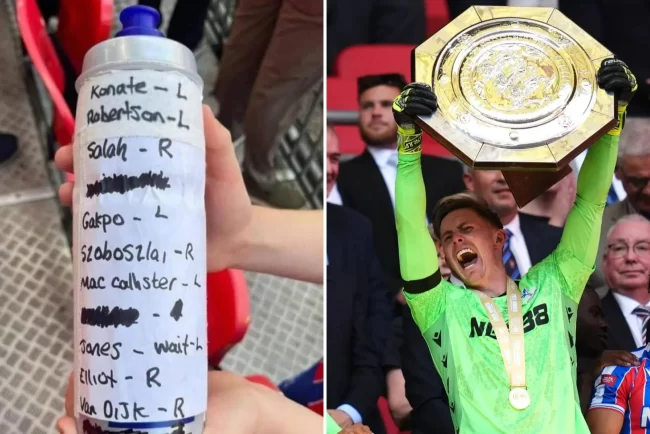 Konate - L
Robertson - L
Salah - R
Gakpo - L
Szoboszlai - R
Mac callister - L
Jones - wait - L
Elliot - R
Van Dijk - R
NET88